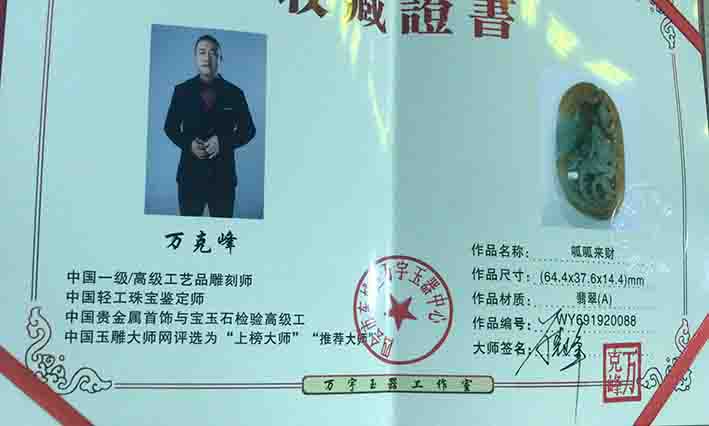 收藏證書
万克峰
中国一级/高级工艺品雕刻师
中国轻工珠宝鉴定师
中国贵金属首饰与宝玉石检验高级工
中国玉雕大师网评选为“上榜大师”“推荐大师”
作品名称: 呱呱来财
作品尺寸: (64.4x37.6x14.4)mm
作品材质: 翡翠(A)
作品编号: WY691920088
大师签名:
万克峰
万宇玉器工作室